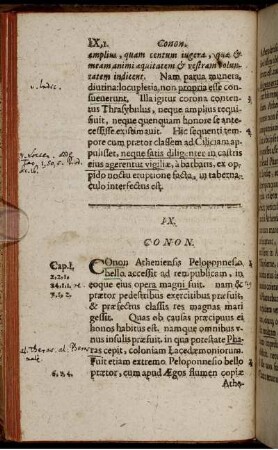 IX,1. Conon.
amplius, quam centum iugera, quæ &
meam animi æquitatem & vestram volun-
tatem indicent. Nam parua munera,
diutina: locupletia, non propria esse con-
sueuerunt. Illa igitur corona conten-
tus Thrasybulus, neque amplius requi-
suit, neque quenquam honore se ante-
cessisse existimauit. Hic sequenti tem-
pore cum prætor classem ad Ciliciam ap-
pulisset, neque satis diligenter in castris
eius agerentur vigiliæ, à barbaris, ex op-
pido noctu eruptione facta, in taberna-
culo interfectus est.
IX.
CONON.
Cap. I.
COnon Atheniensis Peloponnesio
bello, accessit ad rempublicam, in
eoque eius opera magni fuit. nam &
prætor pedestribus exercitibus præfuit,
& præfectus classis res magnas mari
gessit. Quas ob causas præcipuus ei
honos habitus est. namque omnibus v-
nus insulis præfuit: in qua potestate Pha-
ras cepit, coloniam Lacedæmoniorum.
Fuit etiam extremo Peloponnesio bello
prætor, cum apud Ægos flumen copiæ
Athe-